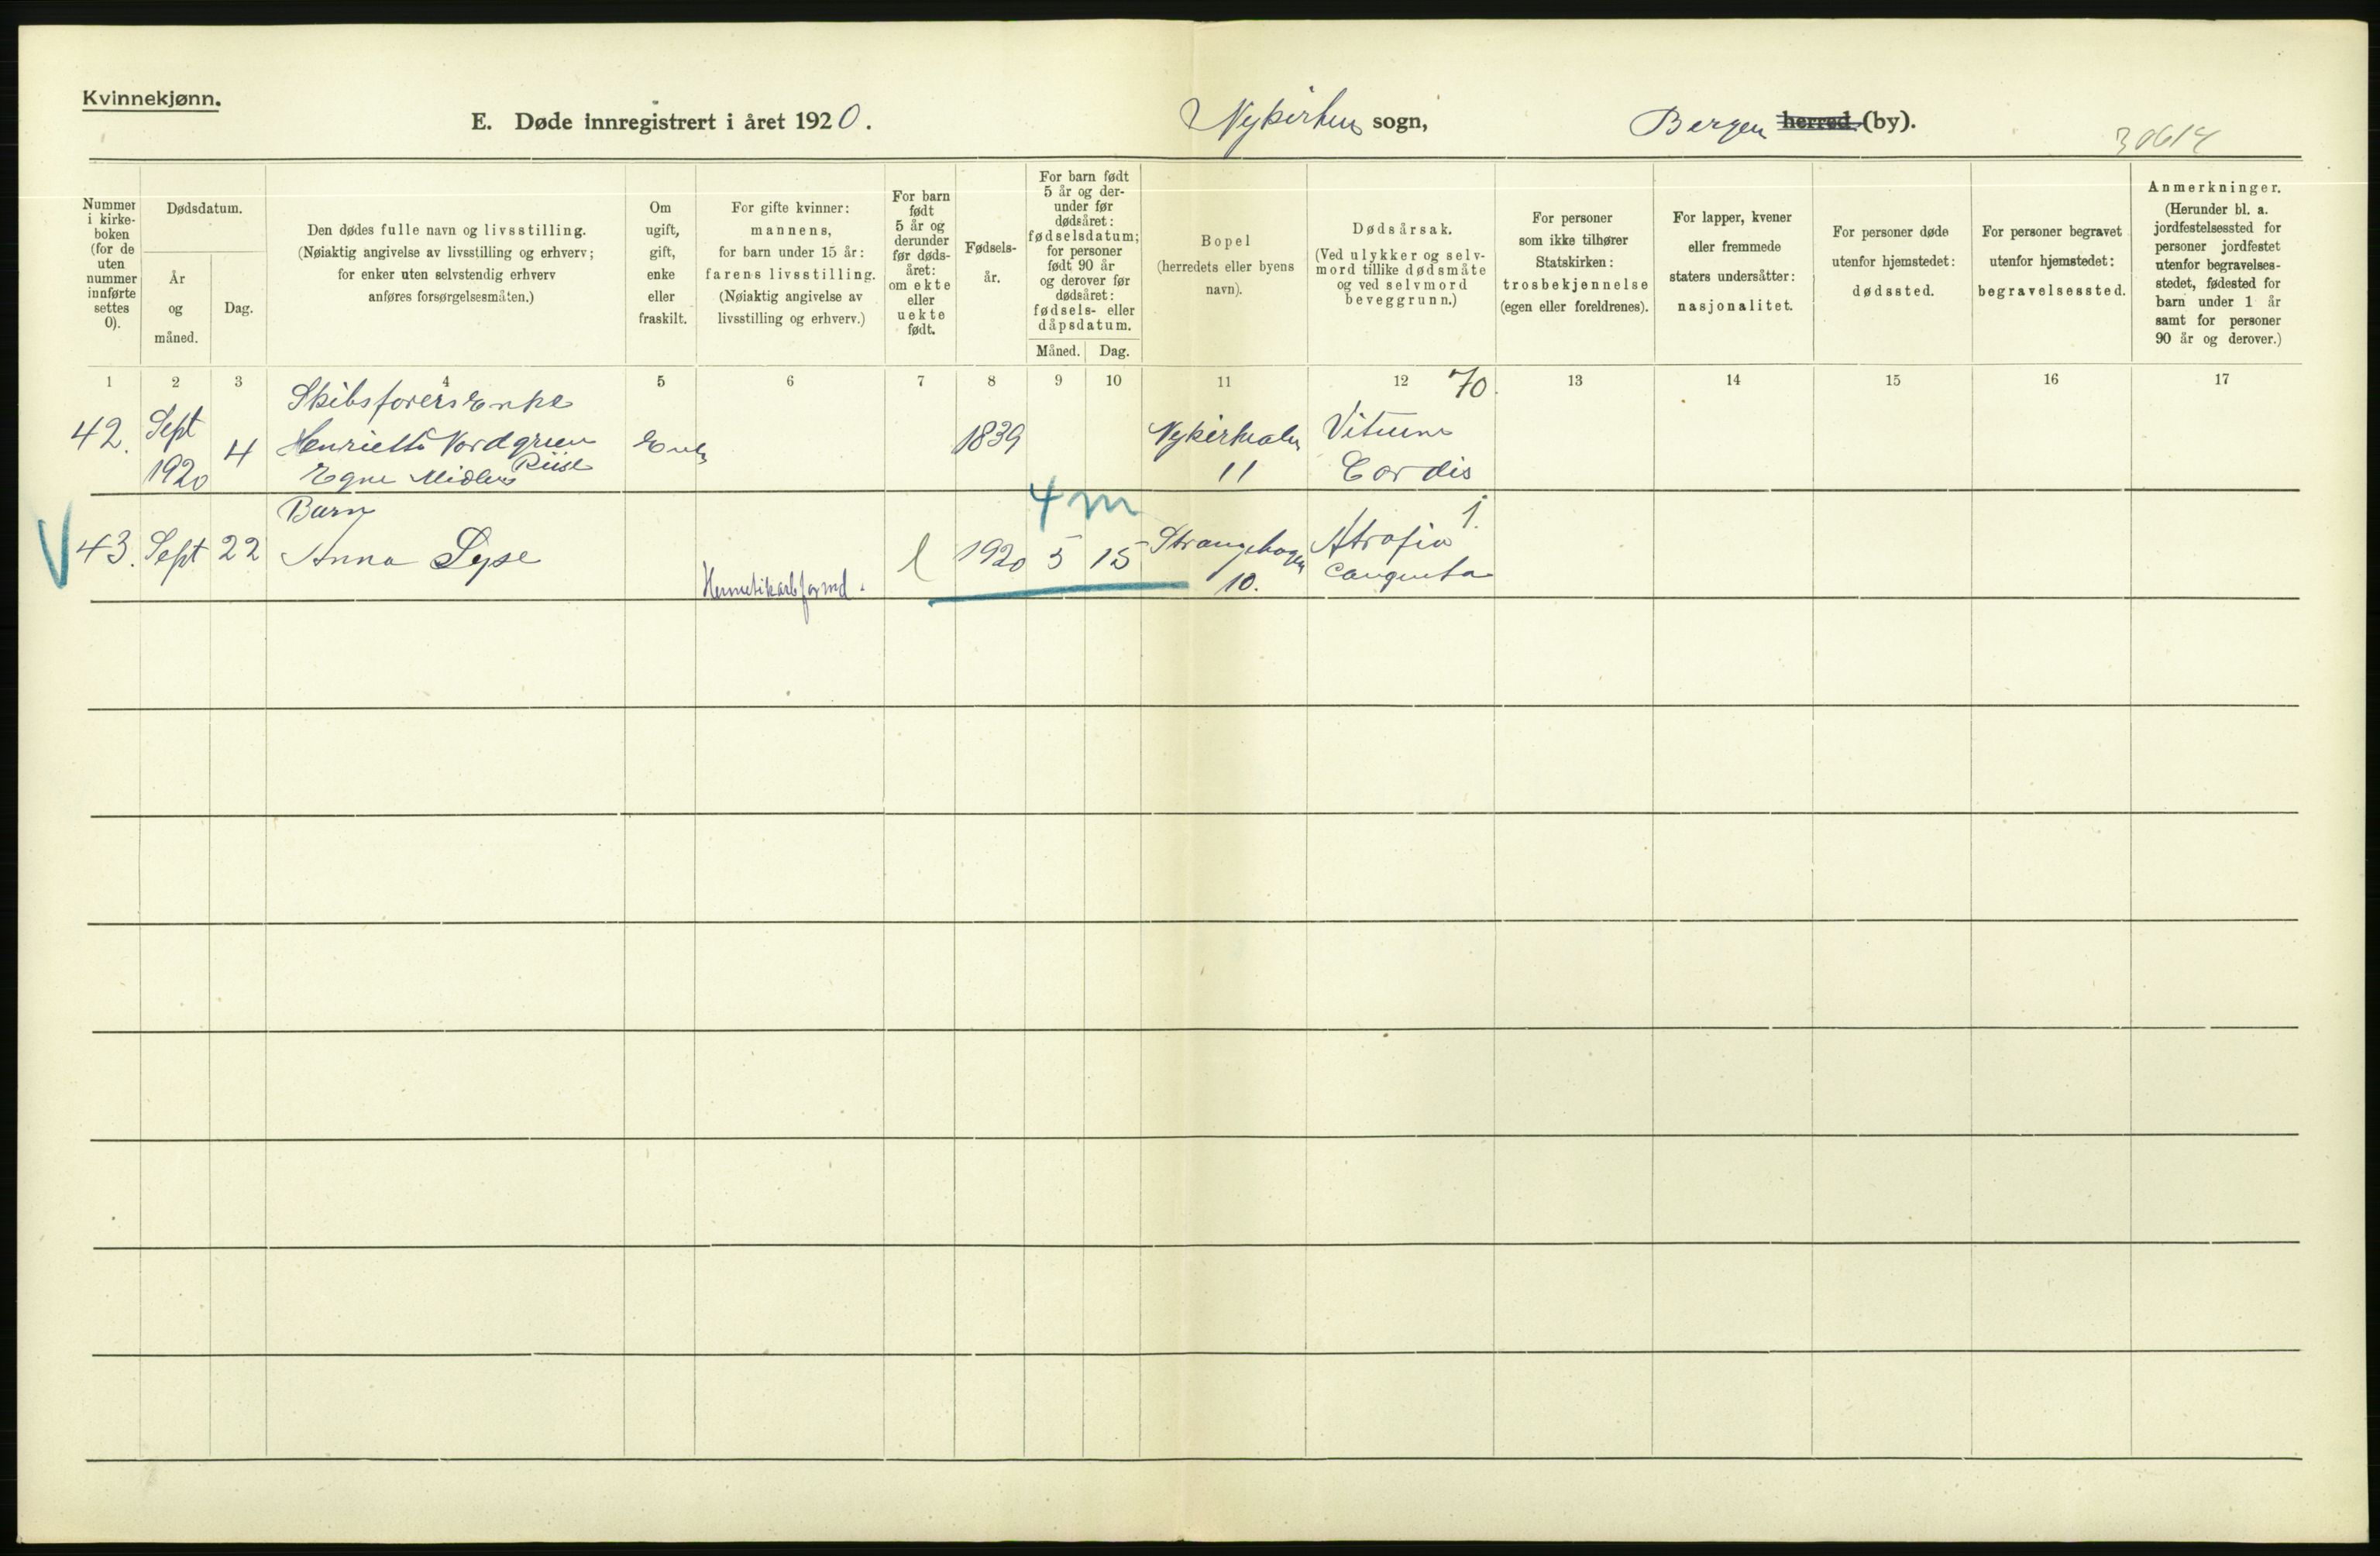 Kvinnekjønn.
E. Døde innregistrert i året 1920.
Nykirkens sogn,
Bergen herred (by).
30614
Nummer i kirke-boken (for de uten nummer innførte settes 0).
Dødsdatum.
År og måned.
Dag.
Den dødes fulle navn og livsstilling.
(Nøiaktig angivelse av livsstilling og erhverv;
for enker uten selvstendig erhverv
anføres forsørgelsesmåten.)
Om
ugift,
gift,
enke
eller
fraskilt.
For gifte kvinner:
mannens,
for barn under 15 år:
farens livsstilling.
(Nøiaktig angivelse av
livsstilling og erhverv.)
For barn
født
5 år og
derunder
før døds-
året:
om ekte
eller
uekte
født.
Fødsels-
år.
For barn født
5 år og der-
under før
dødsåret:
fødselsdatum;
for personer
født 90 år
og derover før
dødsåret:
fødsels- eller
dåpsdatum.
Måned.
Dag.
Bopel
(herredets eller byens
navn).
Dødsårsak.
(Ved ulykker og selv-
mord tillike dødsmåte
og ved selvmord
beveggrunn.)
For personer
som ikke tilhører
Statskirken:
trosbekjennelse
(egen eller foreldrenes).
For lapper, kvener
eller fremmede
staters undersåtter:
nasjonalitet.
For personer døde
utenfor hjemstedet:
dødssted.
For personer begravet
utenfor hjemstedet:
begravelsessted.
Anmerkninger.
(Herunder bl. a.
jordfestelsessted for
personer jordfestet
utenfor begravelses-
stedet, fødested for
barn under 1 år
samt for personer
90 år og derover.)
1 2 3 4 5 6 7 8 9 10 11 12 13 14 15 16 17
70
Skibsførers Enke
42. Sept 1920 4 Henriette Nordgreen Riise Enke 1839 Nykirkealm 11 Vitium Cordis
Egne Midler
4 m
Barn
1.
V 43. Sept 22 Anna Lyse Hermetikarbformd. 1920 5 15 Strangehagen 10. Atrofia Congenita